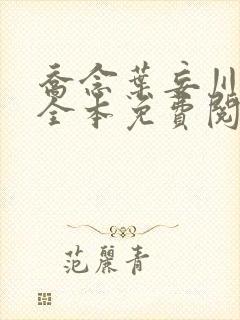 喬念葉妄川
全本免費閱
范麗青